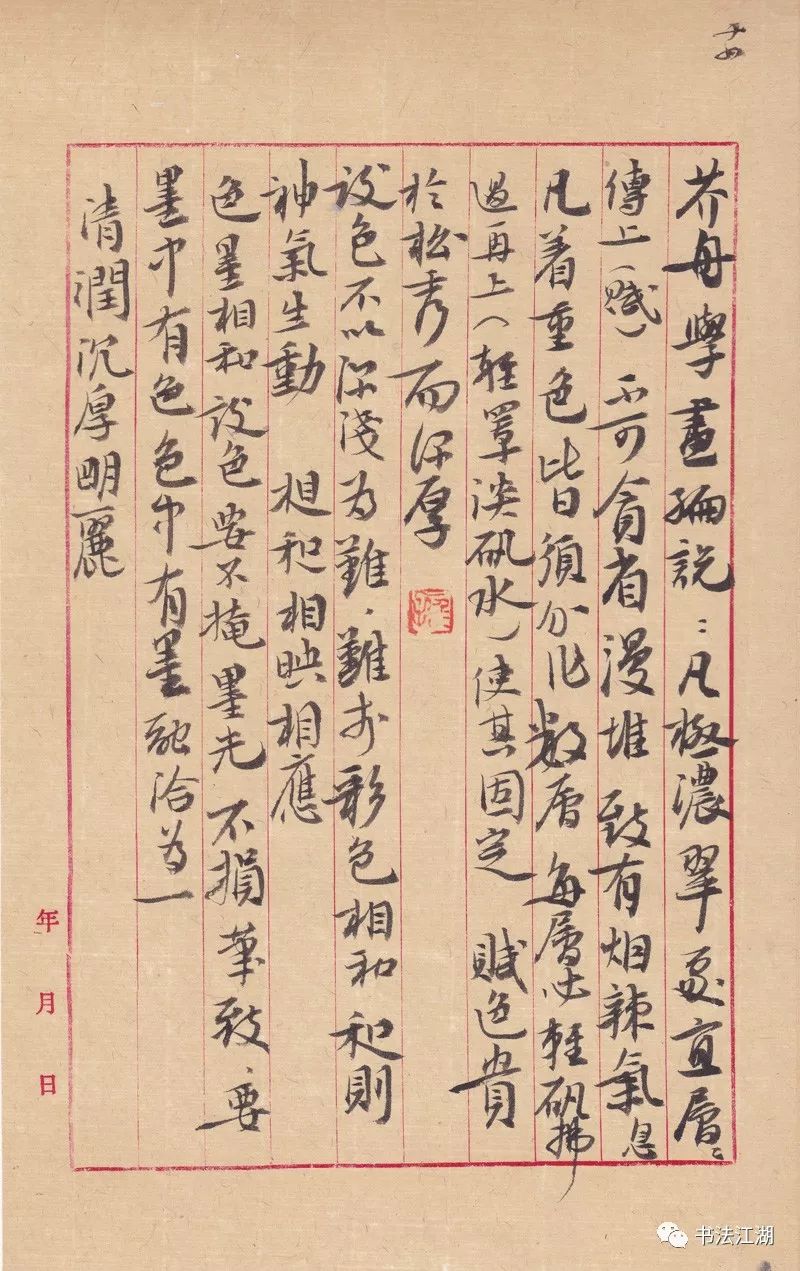 十四
芥舟學畫編說：凡極濃翠處宜層〻
傳上（賦）不可貪省漫堆致有烟辣氣息
凡着重色皆須分作数層每層必輕礬拂
過再上（輕罩淡礬水）使其固定 賦色貴
於松秀而深厚
設色不以深淺為難，難於彩色相和和則
神氣生動 相和相映相應
色墨相和設色要不掩墨光不損筆致，要
墨中有色色中有墨融洽為一
清潤沉厚明麗
年 月 日
书法江湖